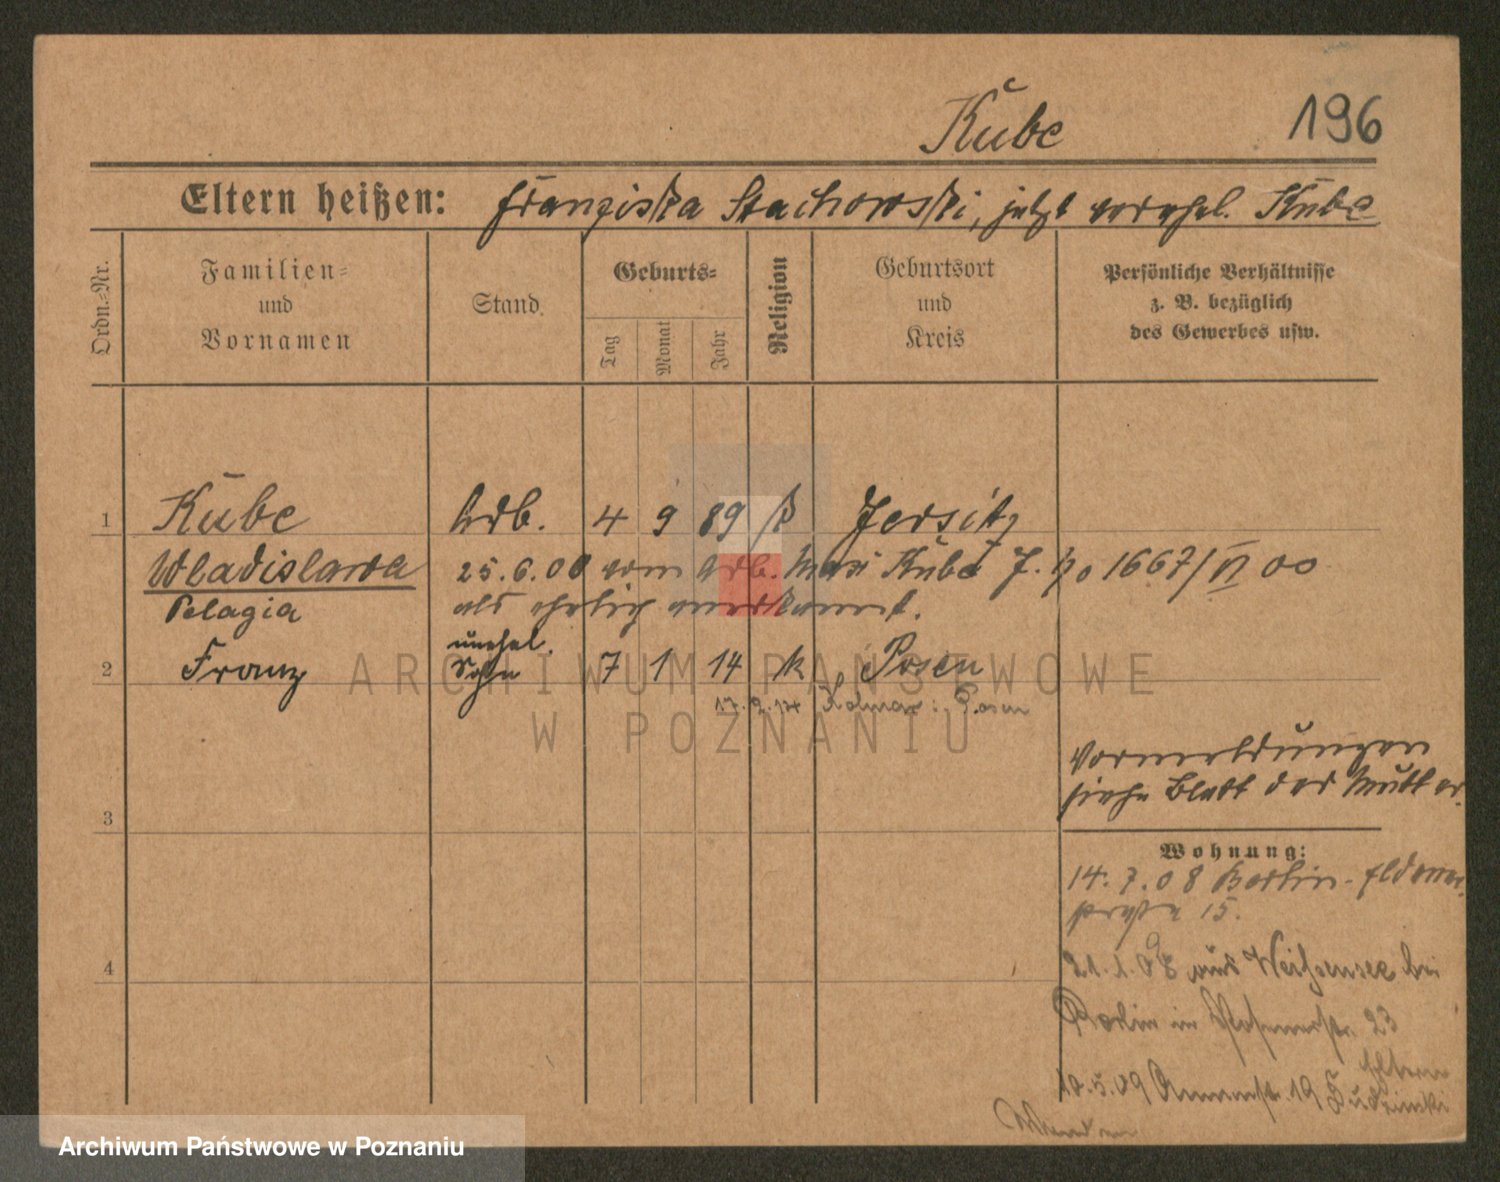 Kube 196
Eltern heißen: Franziska Stachowski, jetzt verehel. Kube
Ordn.-Nr.
Familien-
und
Vornamen
Stand.
Geburts-
Tag
Monat
Jahr
Religion
Geburtsort
und
Kreis
Persönliche Verhältnisse
z. B. bezüglich
des Gewerbes usw.
1 Kube Arb. 4 9 89 k Jersitz
Wladislawa 25.6.00 vom Arb. Kube J. 1667/VI 00
Pelagia als ehelich anerkannt.
unehel.
2 Franz Sohn 7 1 14 k Posen
17.2.14 Kolmar i. Posen
Vormeldungen
siehe Blatt der Mutter.
3
Wohnung:
14.7.08 Berlin-
15.
4
21.1.08 aus Weißensee bei
Berlin in 23
Eltern
10.5.09 19
ARCHIWUM PAŃSTWOWE
W POZNANIU
Archiwum Państwowe w Poznaniu